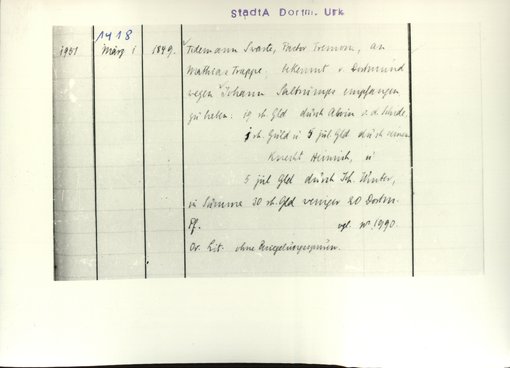 StadtA Dortm. Urk
1418
1951 März 1 1849. Tidemann Svarte, Pastor Tremon., an
Mathias Trappe, bekennt v. Dortmund
wegen Johann Saltrumps empfangen
zu haben: 19 rh. Gld durch Alvin v. d. 
5 rh. Guld u 5 jül. Gld durch seinen
Knecht Heinrich, u
5 jül. Gld durch Joh. Winter,
in Summe 30 rh. Gld weniger 20 Dortm.
Pf. vgl. nr. 1990.
Or. Lit. ohne Besiegelungsspuren.